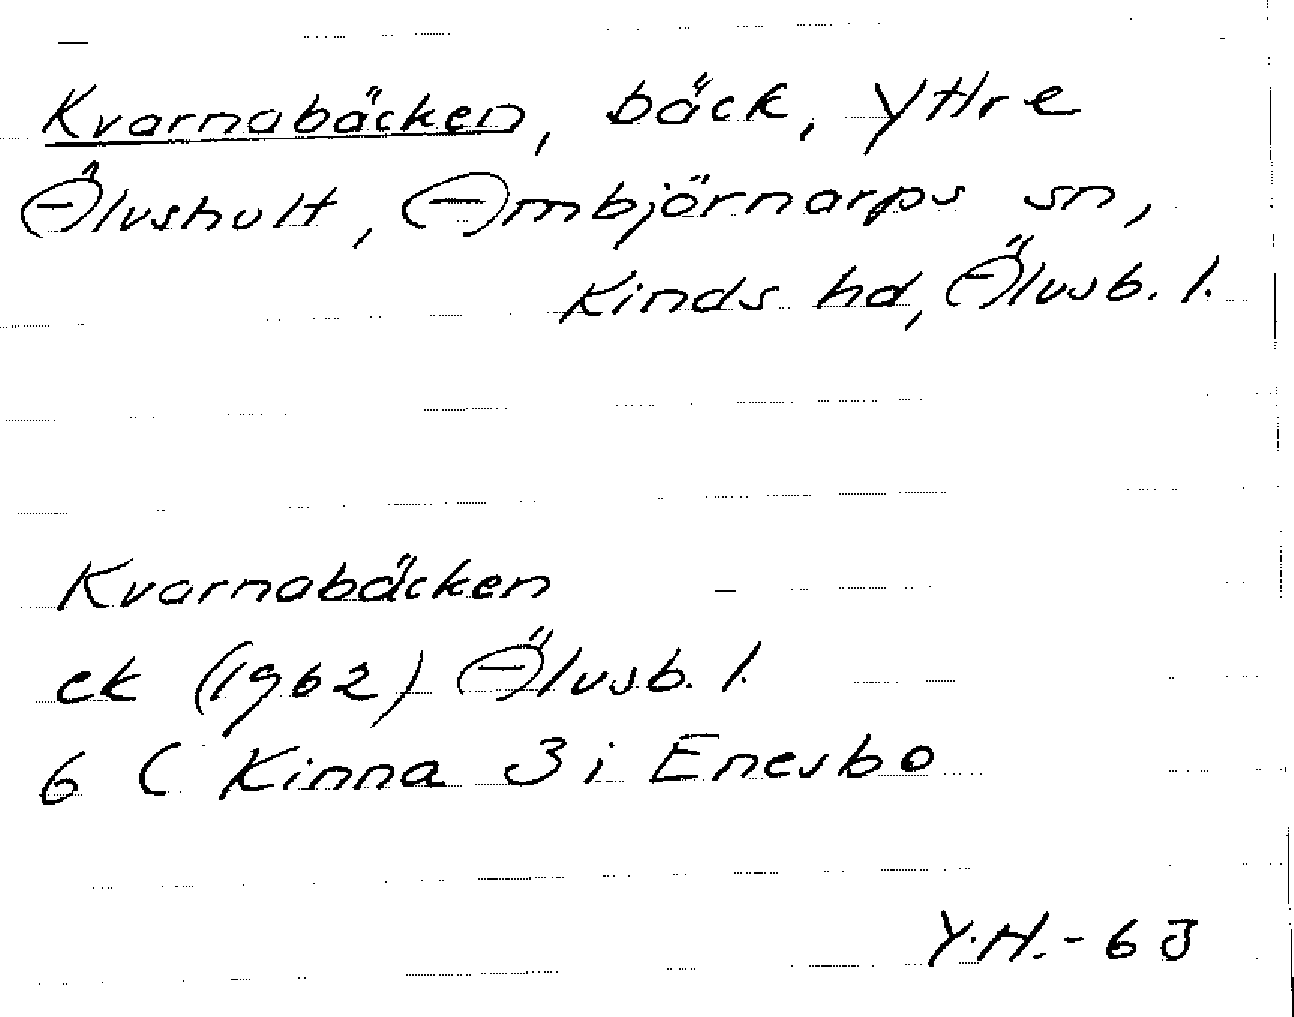 Kvarnabäcken, bäck, Yttre
Älvshult, Ambjörnarps sn,
Kinds hd, Älvsb. l.
Kvarnabäcken
ek (1962) Älvsb. l.
6 C Kinna 3 i Enesbo
Y.H.-63